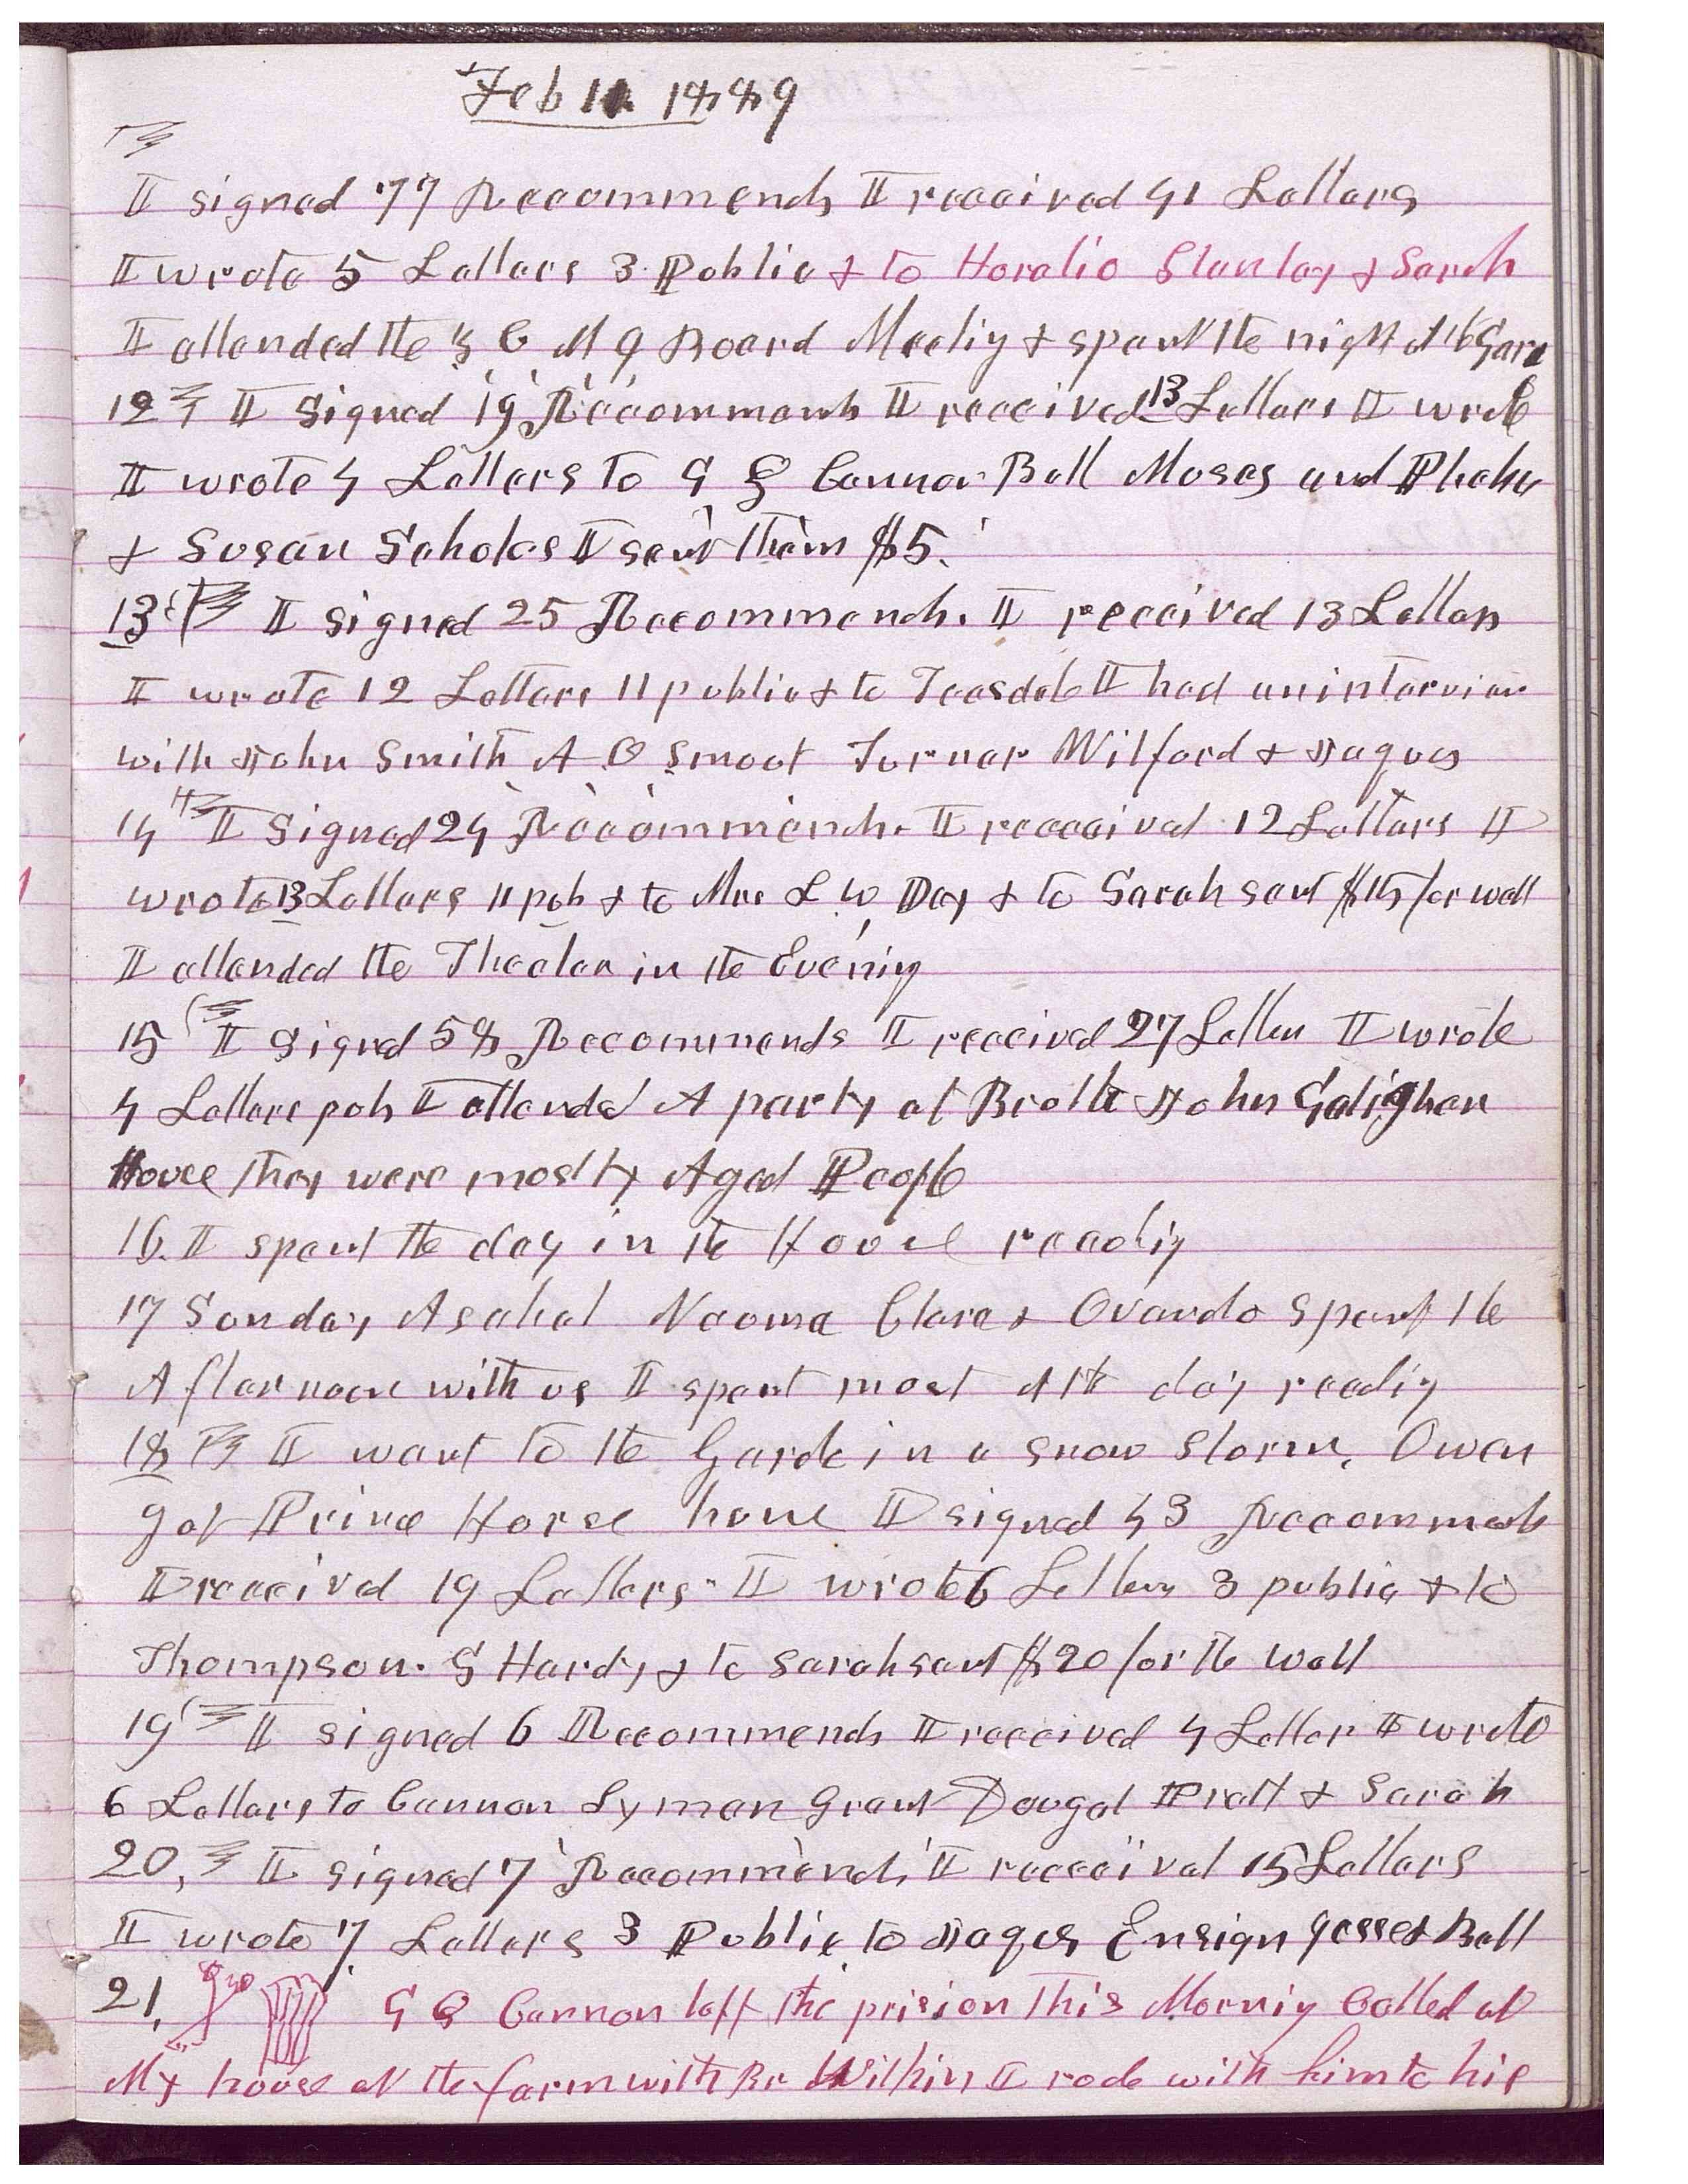 Feb 11 1889
I signed 77 Recommends I received 41 Letters
I wrote 5 Letters 3 Public & to Horatio Stanley & Sarah
I attended the Z C M I Board Meetig & spent the night at the Gard
12 I signed 19 Recommends I received 13 Letters I wrote
I wrote 4 Letters to G Q Cannon Bell Moses and Phebe
& Susan Scholes I sent them $5.
13 I signed 25 Recommends. I received 13 Letters
I wrote 12 Letters 11 public & to Teasdele I had an intervien
with John Smith A O Smoot Turner Wilford & Jaques
14 I signed 24 Recommends. I receeived 12 Letters I
wrote 13 Letters 11 pub & to Mrs L W Day & to Sarah sent $15 for well
I attended the Theater in the Evenig
15 I signed 58 Recommends I received 27 Letters I wrote
4 Letters pub I attended A party at Brothe John
House they were mostly Aged People
16. I spent the day in the House readig
17 Sunday Asahel Naoma Clara & Ovando spent the
Afternoon with us I spent most of the day readig
18 I went to the Garde in a snow storm, Owen
got Prince Horse home I signed 43 Recommends
I received 19 Letters. I wrote 6 Letters 3 public & to
Thompson. G Hardy & to Sarah sent $20 for the well
19 I signed 6 Recommends I received 4 Letter I wrote
6 Letters to Cannon Lyman Grant Dougal Pratt & Sarah
20, I signed 7 Recommends I received 15 Letters
I wrote 7 Letters 3 Public to Jaques Ensign Jesse & Bell
21, G Q Cannon left the prision this Mornig Called at
My house at the farm with Br Wilkin I rode with him to his